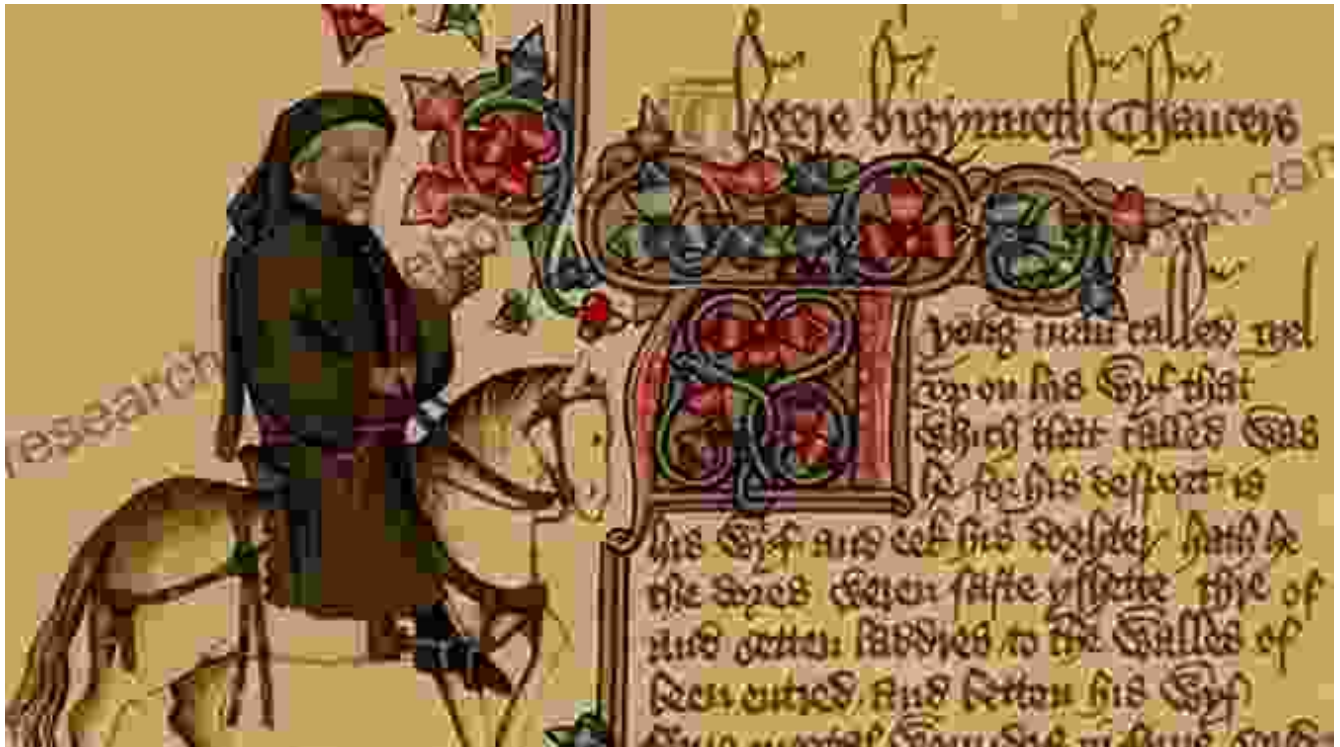 Heere bigynneth Chaucers
A yong man called Mel
vp on his wyf that
which that called was
he for his desport is
his wyf and eek his doghter hath he
the dores weren faste yshette thre of
and setten laddres to the walles of
been entred. And betten his wyf
research